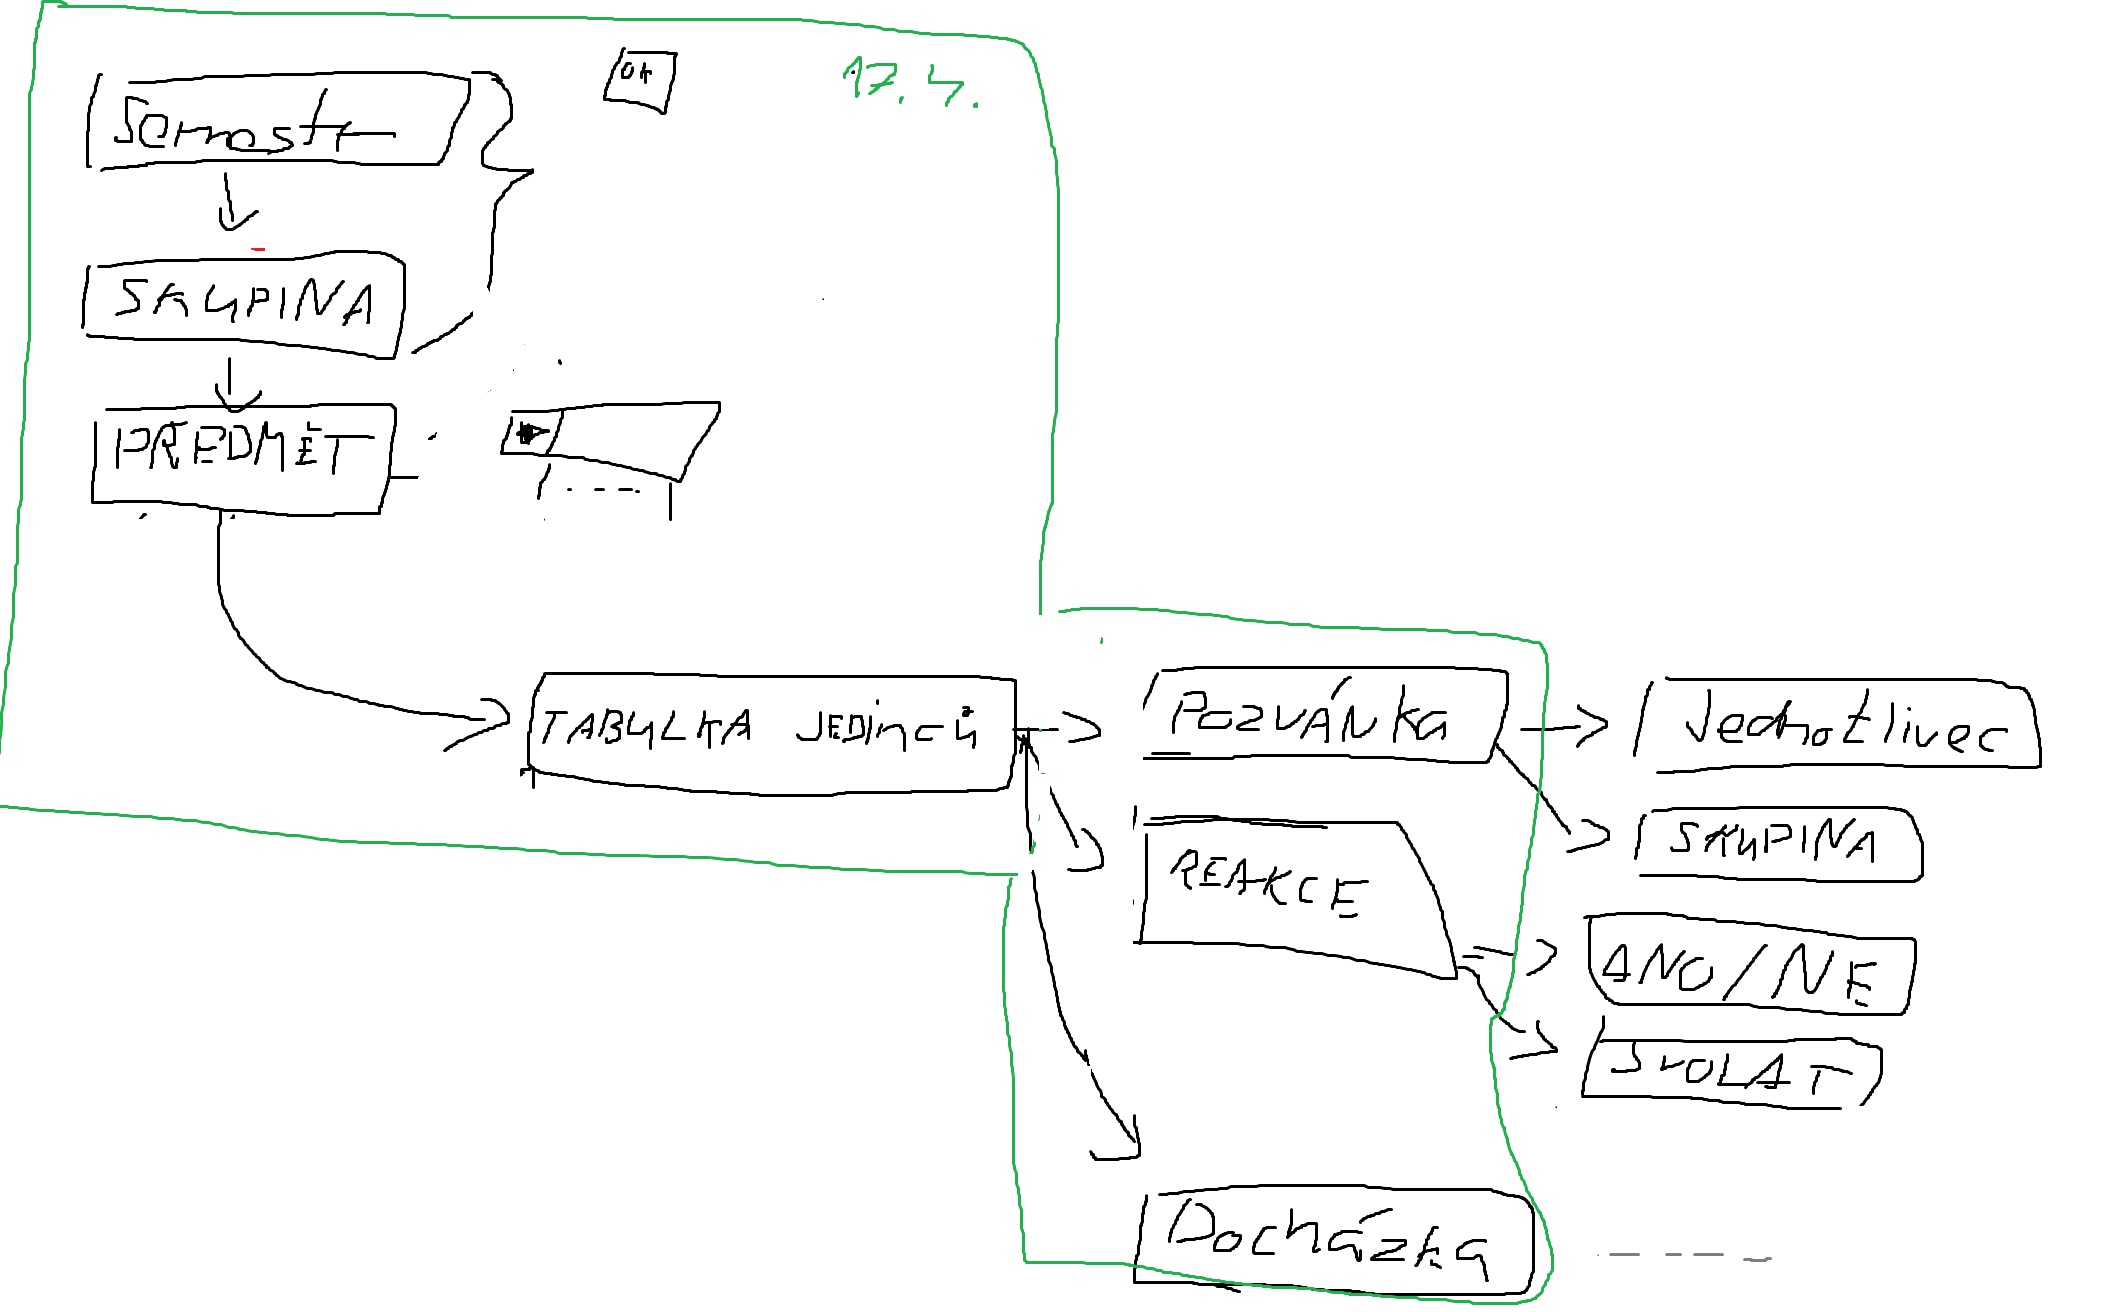 Semestr
OK
17. 4.
SKUPINA
PŘEDMĚT
TABULKA JEDINCŮ
POZVÁNKA
Jednotlivec
SKUPINA
REAKCE
ANO/NE
SVOLAT
Docházka